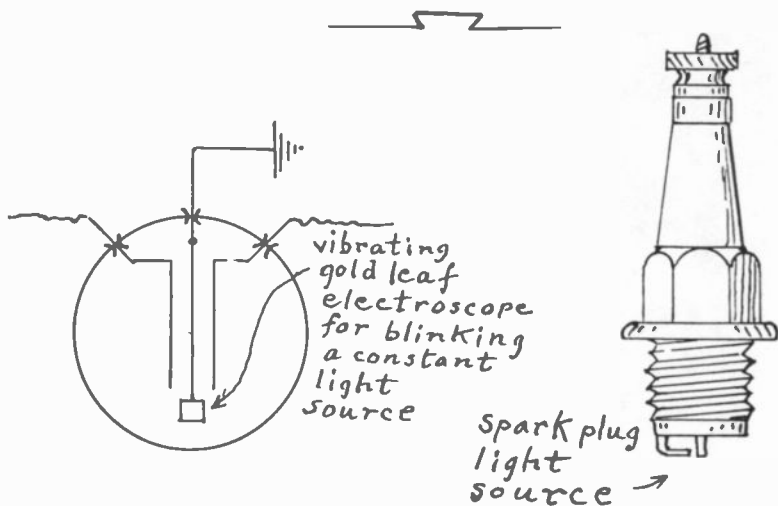 vibrating
gold leaf
electroscope
for blinking
a constant
light
source
spark plug
light
source